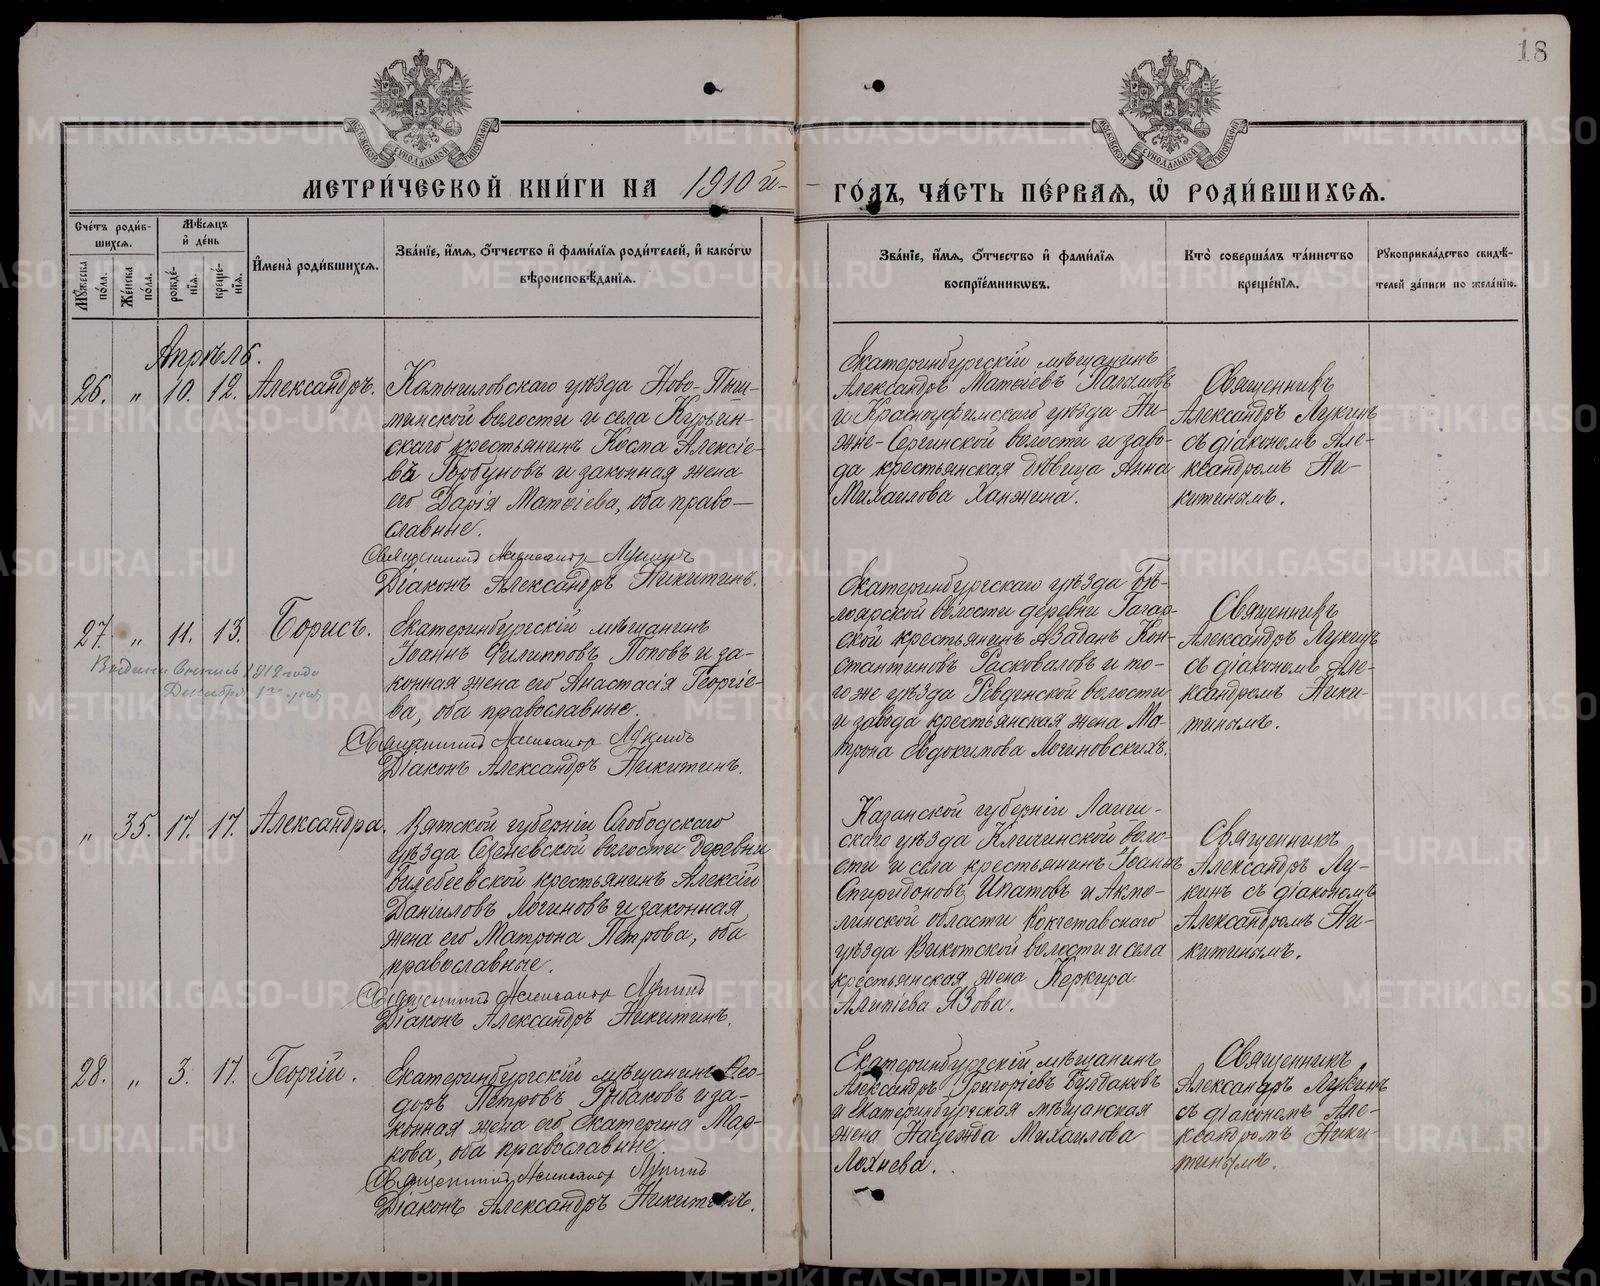 18
МЕТРИ́ЧЕСКОЙ КНИ́ГИ НА 1910 й
ГО́ДЪ, ЧА́СТЬ ПЕ́РВАЯ, Ѡ҆ РОДИ́ВШИХСЯ.
Сче́тъ роди́в-
шихся.
Мѣ́сяцъ
и҆ де́нь
Мꙋ́жеска по́ла.
Же́нска по́ла.
рожде́-
нїя.
креще́-
нїя.
И҆мена̀ роди́вшихся.
Зва́нїе, и҆́мя, ѻ҆́тчество и҆ фами́лїя роди́телей, и҆ како́гѡ
вѣроисповѣ́данїя.
Зва́нїе, и҆́мя, ѻ҆́тчество и҆ фами́лїя
воспрїе́мникѡвъ.
Кто̀ соверша́лъ та́инство
креще́нїя.
Рꙋкоприкла́дство свидѣ́-
телей за́писи по жела́нїю.
Апрѣль.
26. „ 10. 12. Александръ.
Камышловскаго уѣзда Ново-Пыш-
минской волости и села Курьин-
скаго крестьянинъ Коста Алексіе-
въ Горбуновъ и законная жена
его Дарія Матѳіева, оба право-
славные.
Священникъ Александръ Лукинъ
Діаконъ Александръ Никитинъ.
Екатеринбургскій мѣщанинъ
Александръ Матѳіевъ
и Красноуфимскаго уѣзда Ни-
жне-Сергинской волости и заво-
да крестьянская дѣвица Анна
Михаилова Ханжина.
Священникъ
Александръ Лукинъ
съ діакономъ Але-
ксандромъ Ни-
китинымъ.
27. „ 11. 13. Борисъ.
Выдана выпись 1912 года
Декабря 1го дня
Екатеринбургскій мѣщанинъ
Іоаннъ Филипповъ Поповъ и за-
конная жена его Анастасія Георгіе-
ва, оба православные.
Священникъ Александръ Лукинъ
Діаконъ Александръ Никитинъ.
Екатеринбургскаго уѣзда Бѣ-
лоярской волости деревни Гагар-
ской крестьянинъ Кон-
стантиновъ Расковаловъ и то-
го же уѣзда Ревдинской волости
и завода крестьянская жена Ма-
трона Евдокимова Логиновскихъ.
Священникъ
Александръ Лукинъ
съ діакономъ Але-
ксандромъ Ники-
тинымъ.
„ 35. 17. 17. Александра.
Вятской губерніи Слободскаго
уѣзда Сезеневской волости деревни
крестьянинъ Алексій
Даніиловъ Логиновъ и законная
жена его Матрона Петрова, оба
православные.
Священникъ Александръ Лукинъ
Діаконъ Александръ Никитинъ.
Казанской губерніи Лаиши-
скаго уѣзда воло-
сти и села крестьянинъ Іоаннъ
Спиридоновъ Ипатовъ и Акмо-
линской области Кокчетавскаго
уѣзда волости и села
крестьянская жена Керкира
Алипіева Язова.
Священникъ
Александръ Лу-
кинъ съ діакономъ
Александромъ Ни-
китинымъ.
28. „ 3. 17. Георгій.
Екатеринбургскій мѣщанинъ Ѳео-
доръ Петровъ Рыбаковъ и за-
конная жена его Екатерина Мар-
кова, оба православные.
Священникъ Александръ Лукинъ
Діаконъ Александръ Никитинъ.
Екатеринбургскій мѣщанинъ
Александръ Григоріевъ Булдаковъ
и екатеринбургская мѣщанская
жена Надежда Михаилова
Лохнева.
Священникъ
Александръ Лукинъ
съ діакономъ Але-
ксандромъ Ники-
тинымъ.
METRIKI.GASO-URAL.RU